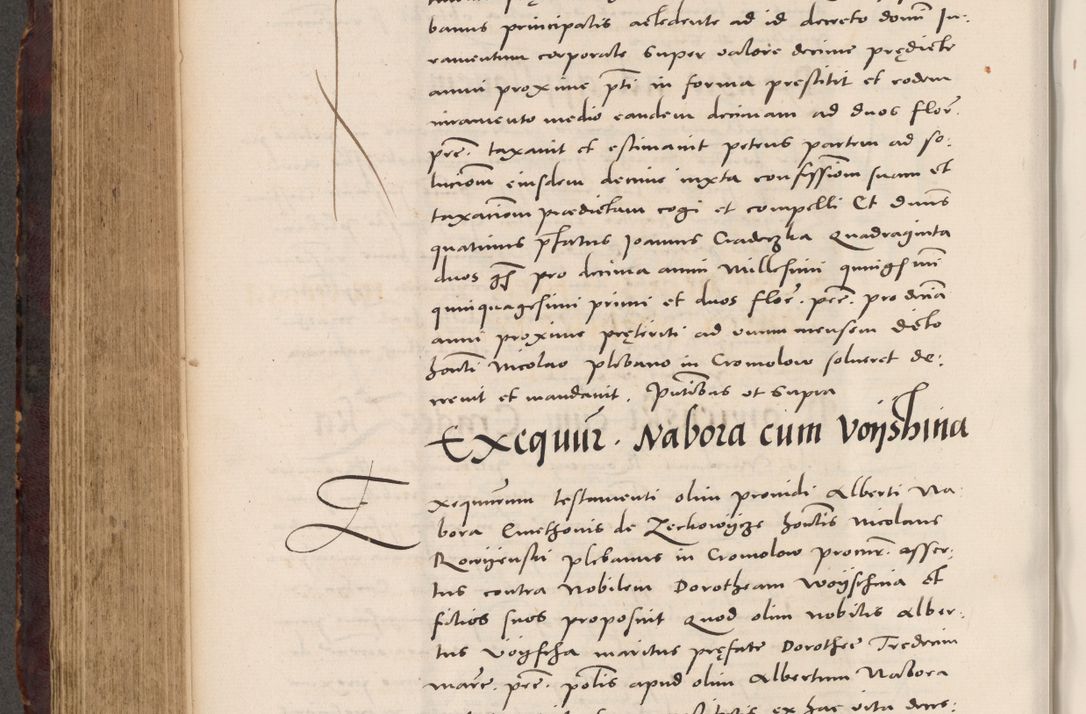 banus principalis acledente ad id decreto domi Iu-
ramentum corporale super valore decime prędicte
anni proxime pti in forma prestitit et eodem
iuramento medio eandem decimam ad duos flor.
pre. taxavit et estimavit petens partem ad so-
lucionem eiusdem decime iuxta confessionem suam et
taxacionem praedictam cogi et compelli Et dnus
quatinus pfatus Joannes Cradeczka Quadraginta
duos gs pro decima anni Millesimi quingsimi
quinquagesimi primi et duos flor. pre. pro decia
anni proxime pręteriti ad unum mensem dicto
honti Nicolao plebano in Cromolow solueret de-
crevit et mandavit. Pntibus ut supra
Exequur. Nabora cum Voijshina
Exequurum testamenti olim providi Alberti Na-
bora Cmethonis de Zerkowijcze hontis Nicolaus
Rocrijenski plebanus in Cromolow procur. asser-
tus contra Nobilem Dorotheam Woijschina et
filios suos proposuit Quod olim nobilis Alber-
tus Voijscha maritus pręfate Dorothee Tredecim
marc. pre. potis apud olim Albertum Nabora
ex hac vita deces-